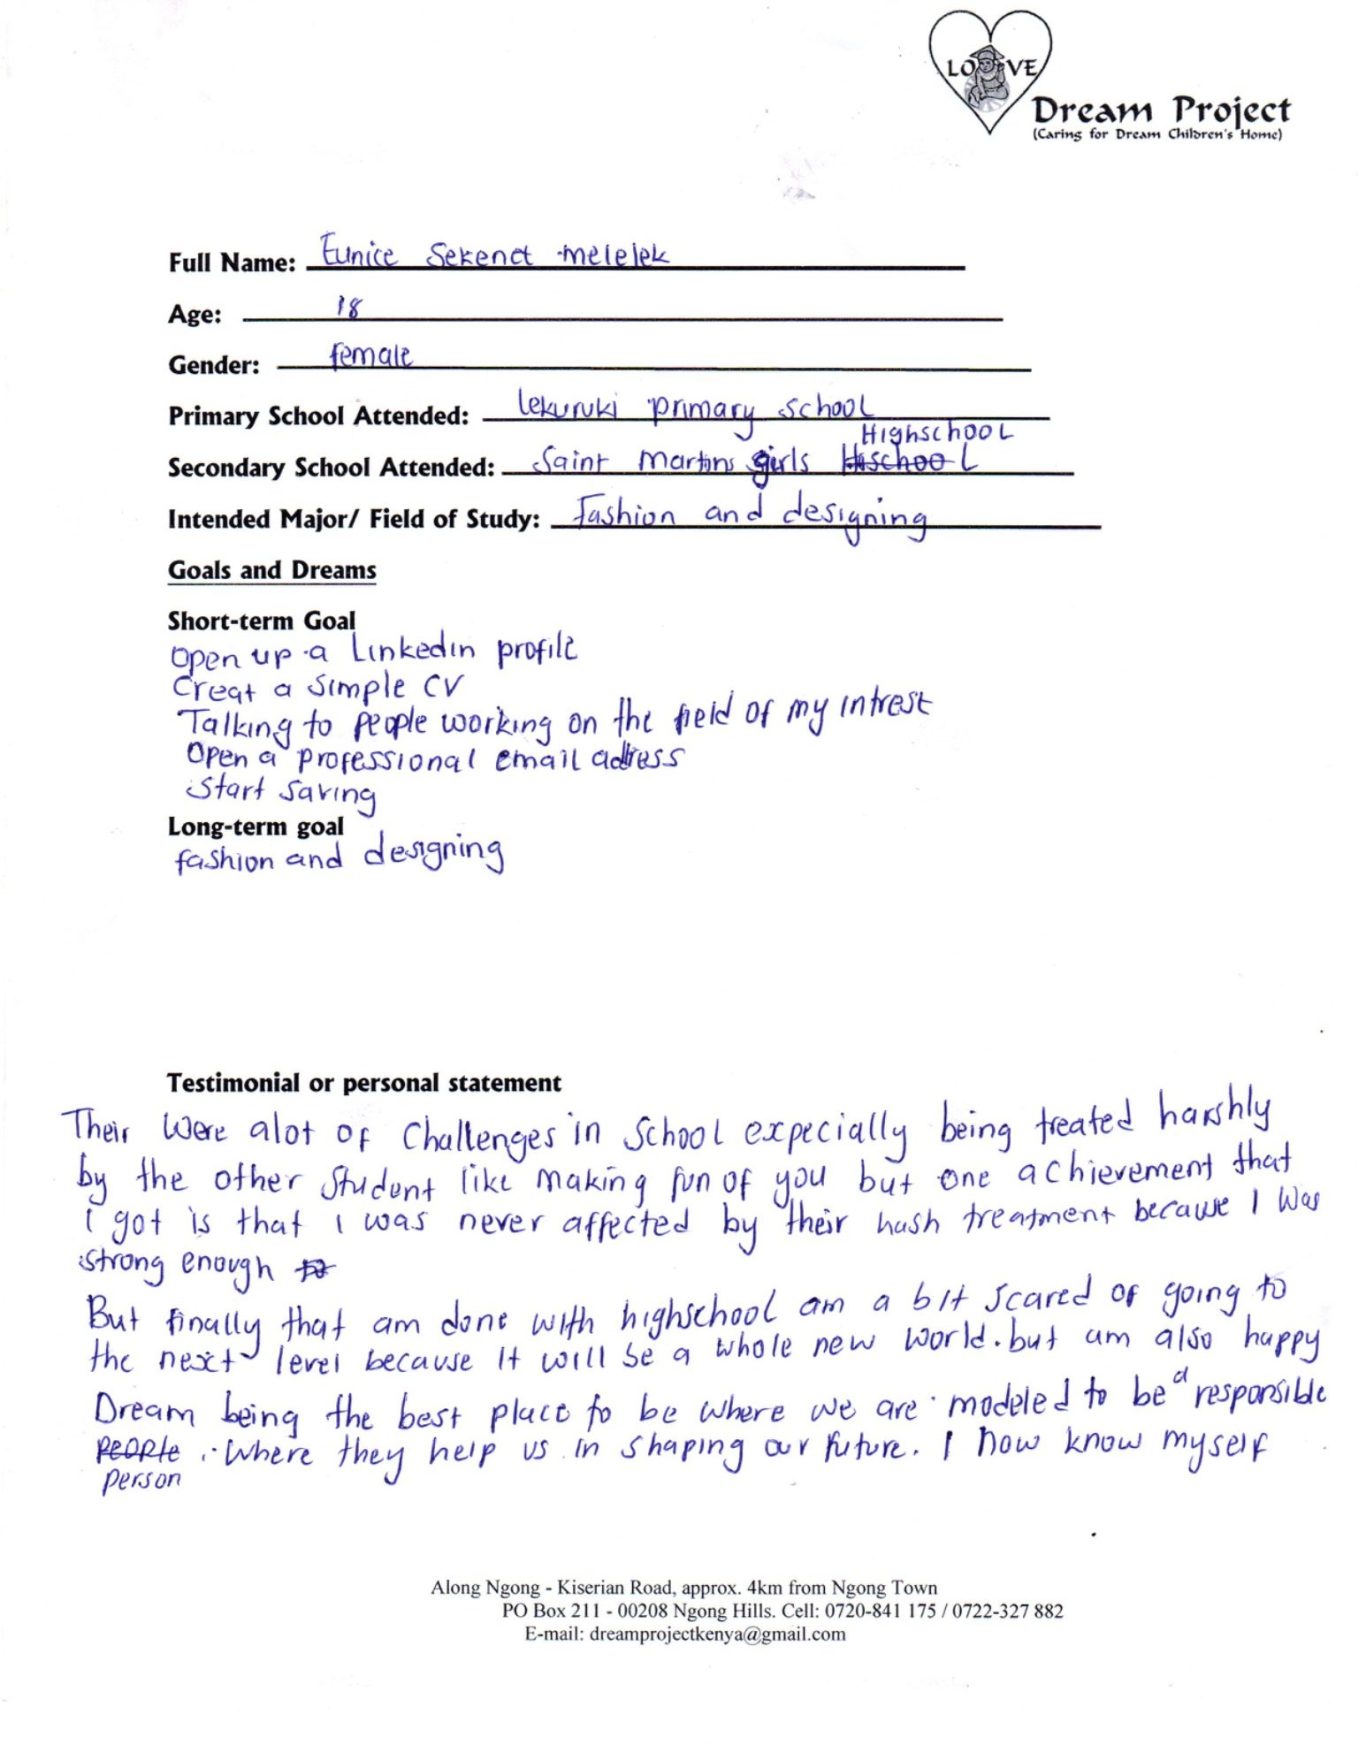 LOVE
Dream Project
(Caring for Dream Children's Home)
Full Name: Eunice Sekenet melelek
Age: 18
Gender: female
Primary School Attended: lekuruki primary school
Highschool
Secondary School Attended: Saint martins girls Hischool
Intended Major/ Field of Study: Fashion and designing
Goals and Dreams
Short-term Goal
Open up a Linkedin profile
Creat a simple CV
Talking to people working on the field of my intrest
Open a professional email adress
Start saving
Long-term goal
fashion and designing
Testimonial or personal statement
Their were alot of challenges in school expecially being treated harshly
by the other student like making fun of you but one achievement that
I got is that I was never affected by their hash treatment because I was
strong enough
But finally that am done with highschool am a bit scared of going to
the next level because it will be a whole new world. but am also happy
Dream being the best place to be where we are modeled to be a responsible
people . where they help us in shaping our future. I now know myself
person
Along Ngong - Kiserian Road, approx. 4km from Ngong Town
PO Box 211 - 00208 Ngong Hills. Cell: 0720-841 175 / 0722-327 882
E-mail: dreamprojectkenya@gmail.com